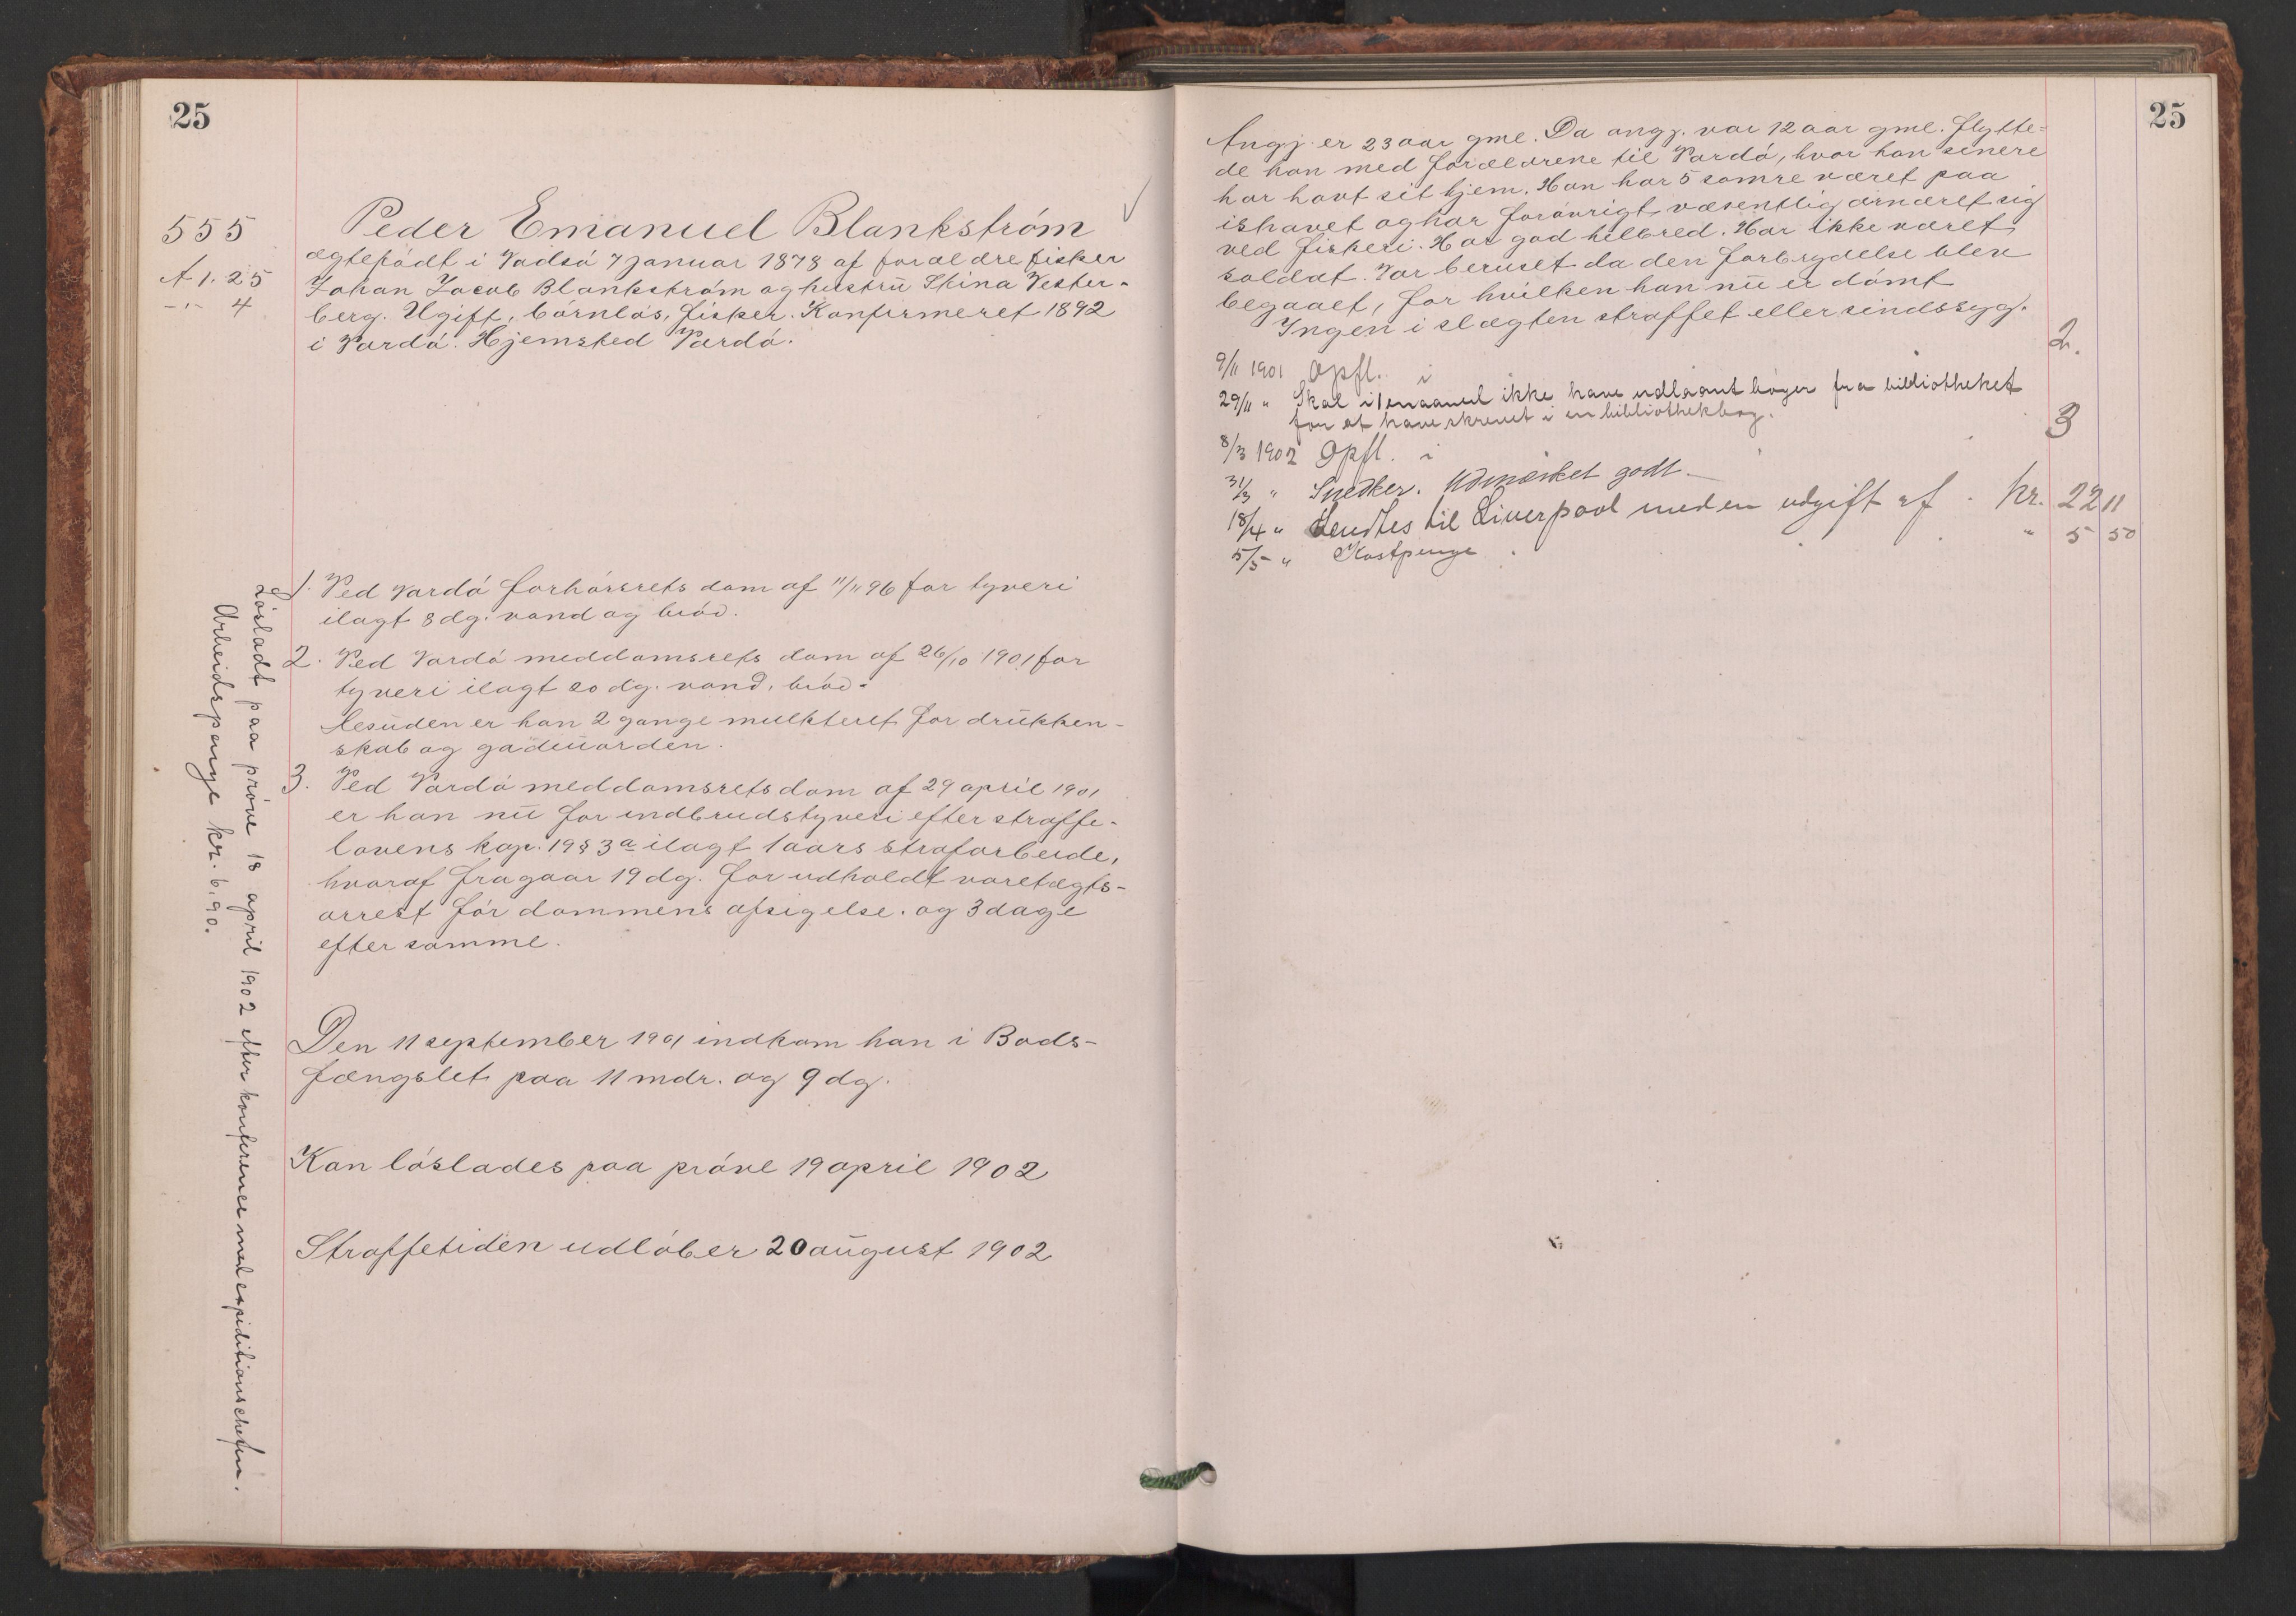 25
555
A 1. 25
-"- 4
Peder Emanuel Blankström
ægtefödt i Vadsö 7 januar 1878 af forældre fisker
Johan Jacob Blankström og hustru Stina Vester-
berg. Ugift, börnlös, fisker. Konfirmeret 1892
i Vardö. Hjemsted Vardö.
1. Ved Vardö forhörsrets dom af 11/11 96 for tyveri
ilagt 8 dg. vand og bröd.
2. Ved Vardö meddomsrets dom af 26/10 1901 for
tyveri ilagt 20 dg. vand. bröd.
Desuden er han 2 gange mulkteret for drukken-
skab og gadeuorden.
3. Ved Vardö meddomsrets dom af 29 april 1901
er han nu for indbrudstyveri efter straffe-
lovens kap. 19 § 3a ilagt 1 aars strafarbeide,
hvoraf fragaar 19 dg. for udholdt varetægts-
arrest för dommens afsigelse. og 3 dage
efter samme.
Den 11 september 1901 indkom han i Bods-
fængslet paa 11 mdr. og 9 dg.
Kan löslades paa pröve 19 april 1902
Straffetiden udlöber 20 august 1902
Lösladt paa pröve 18 april 1902 efter konference med expeditionschefen.
Arbeidspenge kr. 6.90.
25
Angj. er 23 aar gml. Da angj. var 12 aar gml. flytte-
de han med forældrene til Vardö, hvor han senere
har havt sit hjem. Han har 5 somre været paa
ishavet og har forövrigt væsentlig ernæret sig
ved fiskeri. Har god helbred. Har ikke været
soldat. Var beruset da den forbrydelse blev
begaaet, for hvilken han nu er dömt
Ingen i slægten straffet eller sindssyg.
9/11 1901 Opfl. i 2.
29/11 " Skal i 1 maaned ikke have udlaant böger fra bibliotheket
for at have skrevet i en bibliothekbog.
8/3 1902 Opfl. i 3
31/3 " Snedker. Udmærket godt.
18/4 " Sendtes til Liverpool med en udgift af kr. 22 11
5/5 " Kostpenge " 5 50